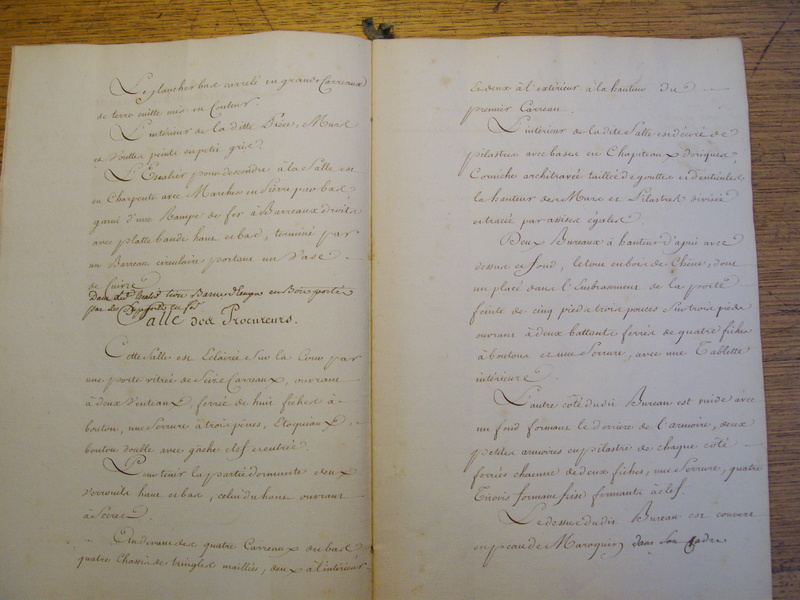 Le plancher bas carrelé en grands Carreaux
de terre cuitte mis en Couleur.
L'intérieur de la ditte Pièce, Murs
et Voutes peints en petit gris.
L'Escalier pour descendre à la Salle est
en Charpente avec Marches en Pierre par bas
garni d'une Rampe de fer à Barreaux droits
avec platte bande haut et bas, terminé par
un Barreau circulaire portant un Vase
de Cuivre
Dans
par des Supports en fer
Salle des Procureurs.
Cette Salle est Eclairée Sur la Cour par
une porte vitrée de Seize Carreaux, ouvrant
à deux Venteaux, ferrée de huit fiches à
bouton, une Serrure à trois pênes,
bouton double avec gache clef et entrée.
Pour tenir la partie dormante deux
Verrouils haut et bas, celui du haut ouvrant
à
Et au devant des quatre Carreaux du bas
quatre Chassis de tringles maillées, deux à l'intérieur
et deux à l'extérieur à la hauteur du
premier Carreau.
L'intérieur de la dite Salle est décoré de
pilastres avec bases et Chapiteaux doriques,
Corniche architravée taillée de gouttes et denticules
la hauteur des Murs et Pilastres divisée
et tracée par assises égales.
Deux Bureaux à hauteur d'apui avec
dessus et fond, le tout en bois de Chêne, dont
un placé dans l'Embrasement de la porte
feinte de cinq pieds trois pouces Sur trois pieds
ouvrant à deux battants ferrés de quatre fiches
à boutons et une Serrure, avec une Tablette
intérieure.
L'autre côté dudit Bureau est vuide avec
un fond formant le derrière de l'armoire, deux
petites armoires en pilastre de chaque côté
ferrées chacune de deux fiches, une Serrure, quatre
Tiroirs formant frise fermants à clef.
Le dessus dudit Bureau est couvert
en peau de Maroquin dans son Cadre